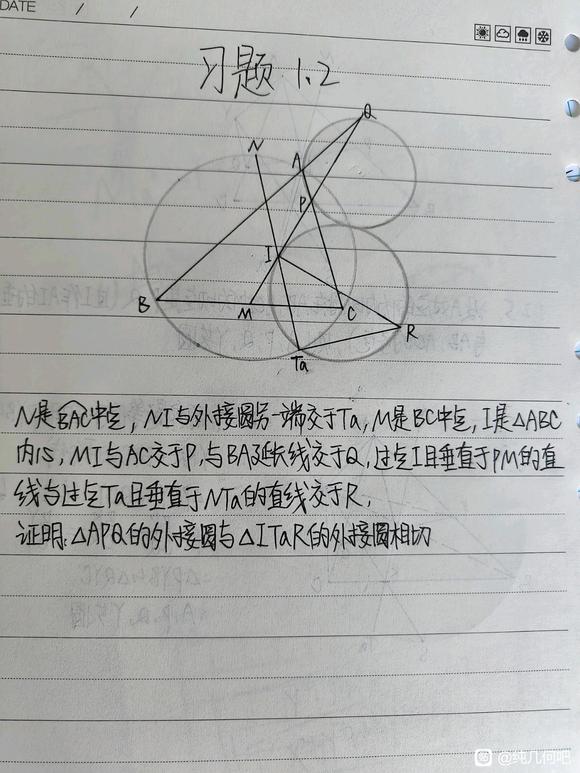 DATE / /
习题 1.2
Q
N
A
P
I
B
M
C
R
Ta
N是BAC中点, NI与外接圆另一端交于Ta, M是BC中点, I是△ABC
内心, MI与AC交于P, 与BA延长线交于Q, 过点I且垂直于PM的直
线与过点Ta且垂直于NTa的直线交于R,
证明: △APQ的外接圆与△ITaR的外接圆相切
@纯几何吧